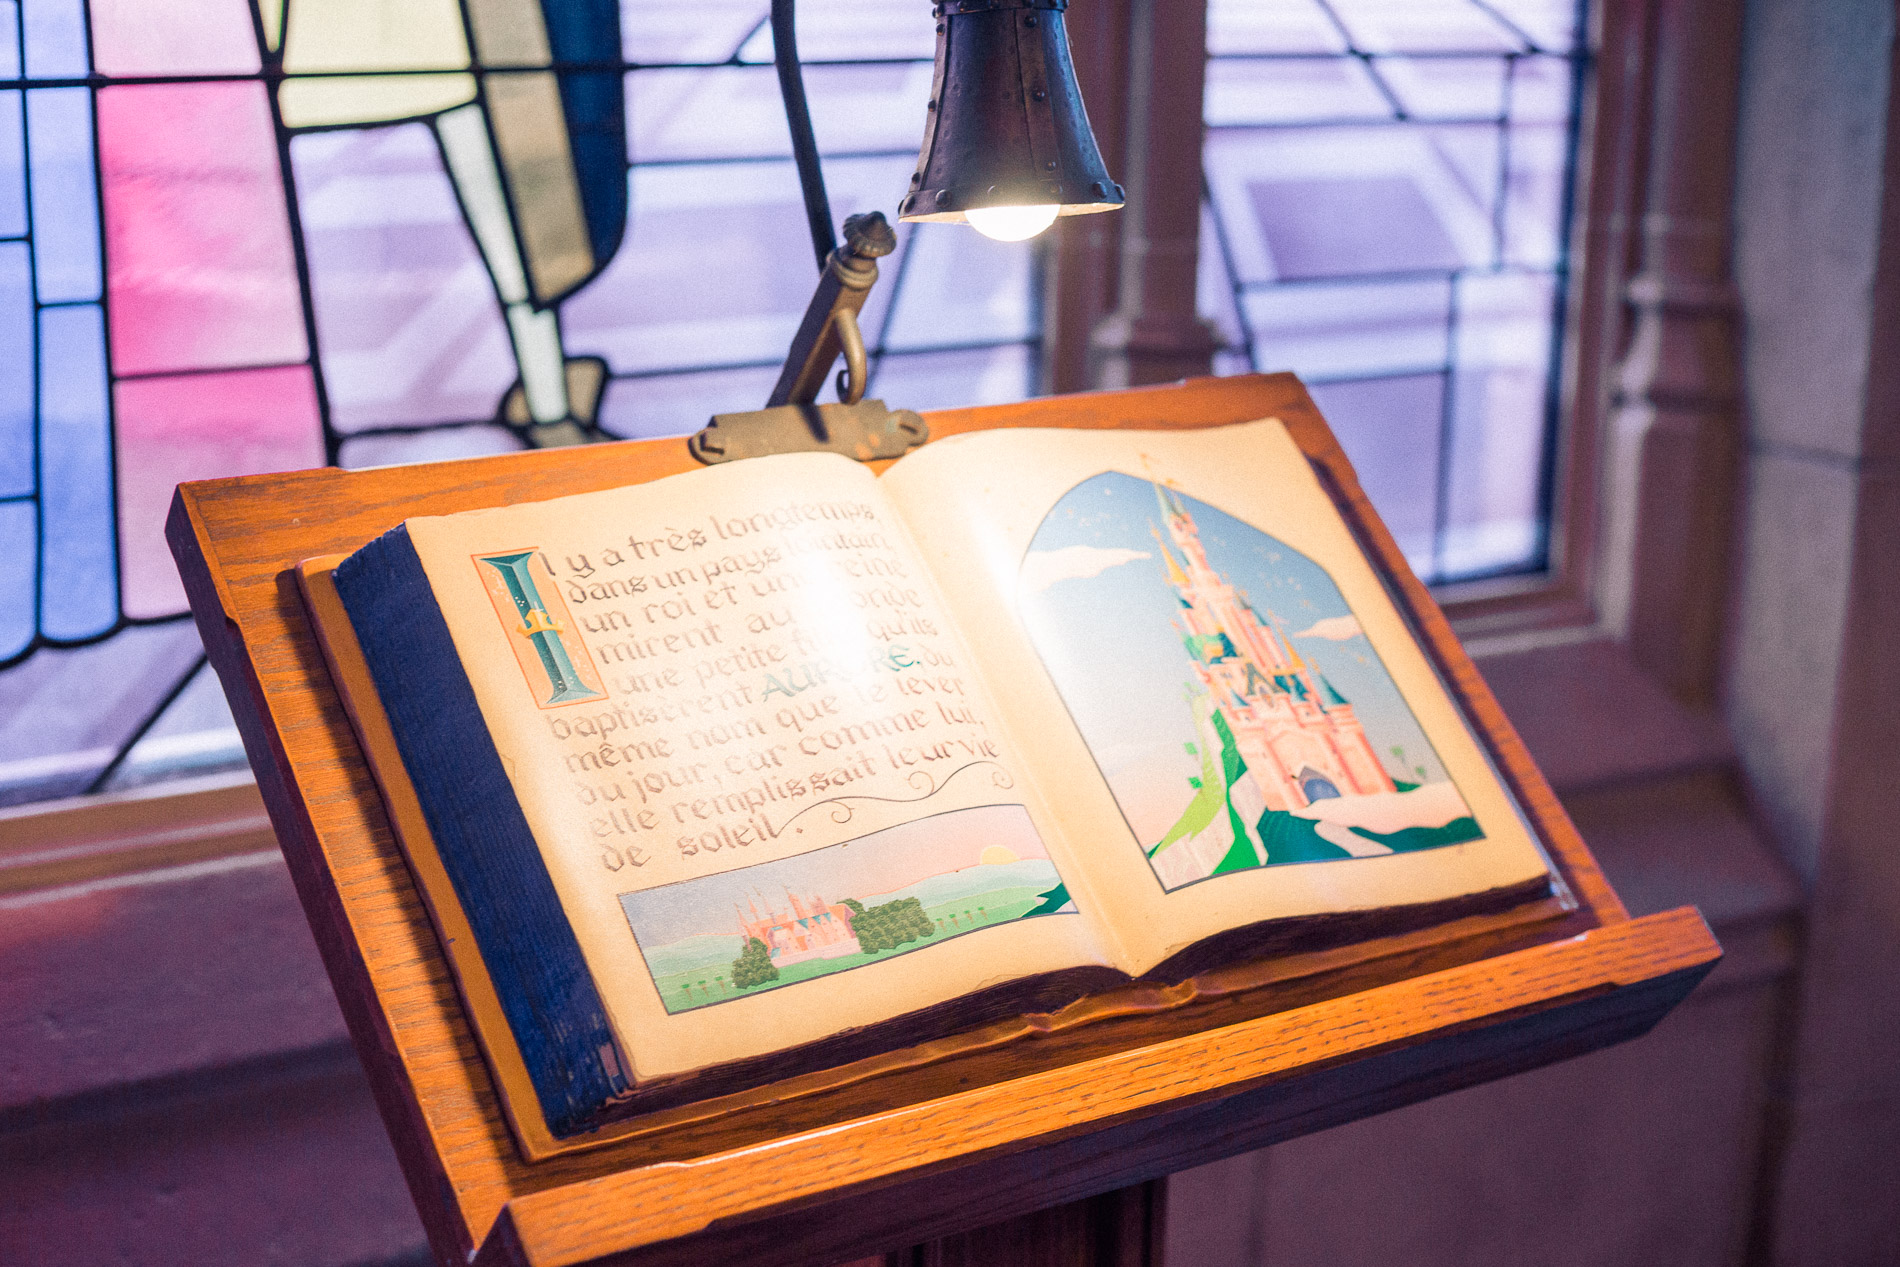 Il y a très longtemps,
dans un pays lointain,
un roi et une reine
mirent au monde
une petite fille qu'ils
baptisèrent AURORE, du
même nom que le lever
du jour, car comme lui,
elle remplissait leur vie
de soleil.